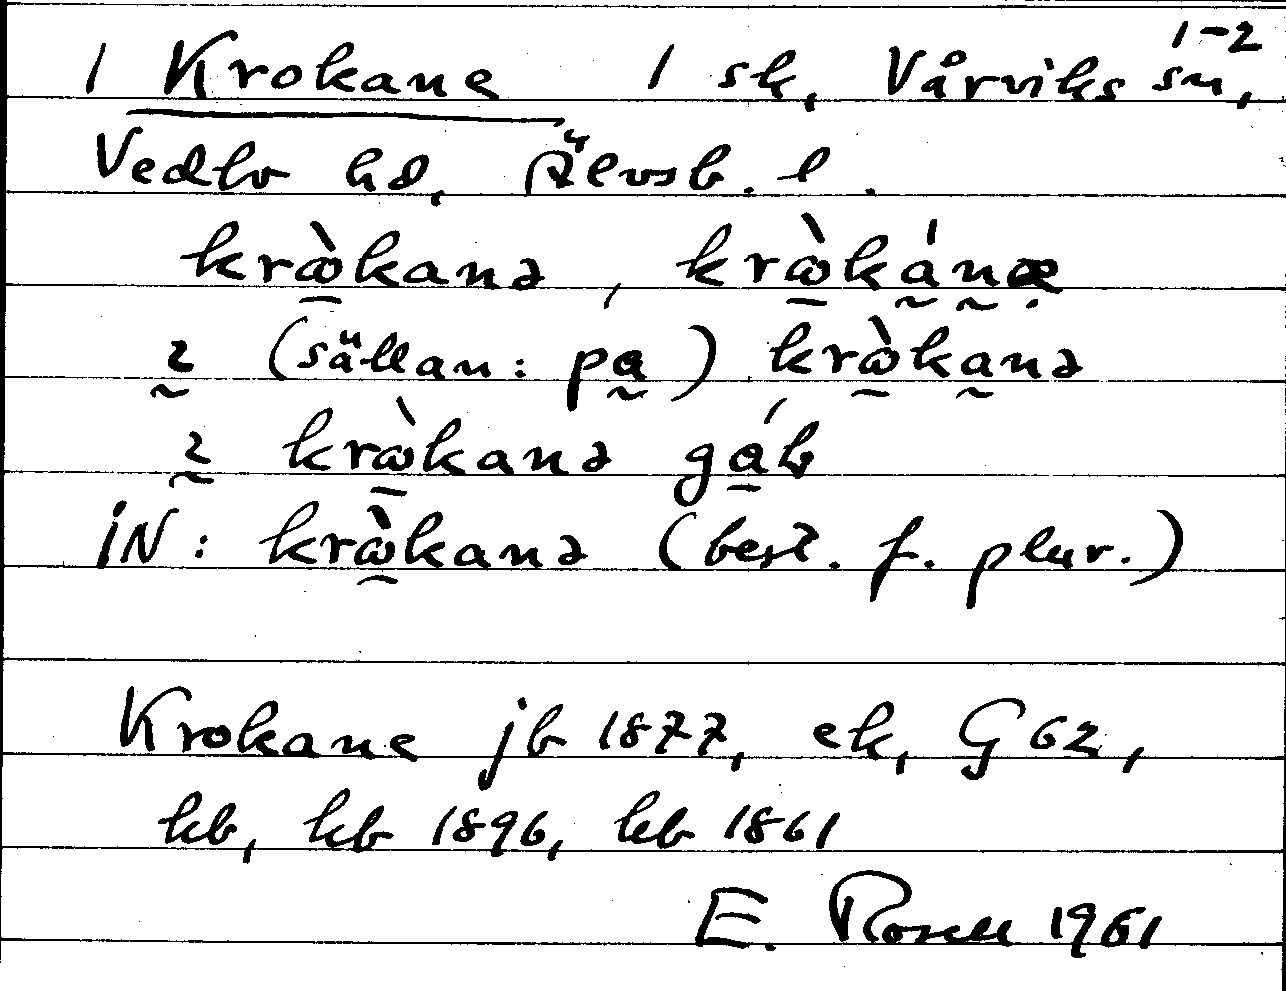 1 Krokane 1 sk, Vårviks sn, 1-2
Vedbo hd, Älvsb. l.
krꞷ̀kanə, krꞷ̀kánæ
ɿ (sällan: pa) krꞷ̀kanə
ɿ krꞷ̀kanə gáb
IN: krꞷ̀kanə (best. f. plur.)
Krokane jb 1877, ek, G 62,
kb, kb 1896, kb 1861
E. Rosell 1961